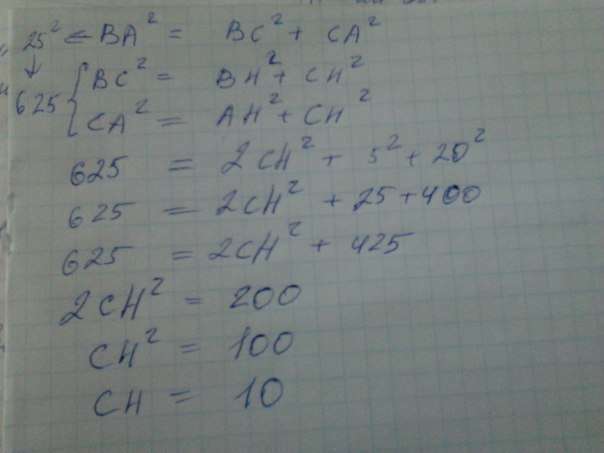 25² ⇐ BA² = BC² + CA²
↓
625 { BC² = BH² + CH²
CA² = AH² + CH²
625 = 2CH² + 5² + 20²
625 = 2CH² + 25 + 400
625 = 2CH² + 425
2CH² = 200
CH² = 100
CH = 10